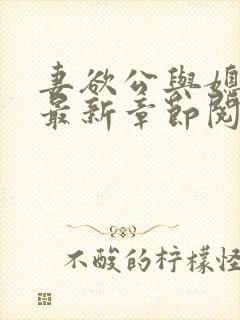 妻欲公與媳
最新章節閱
不酸的柠檬怪